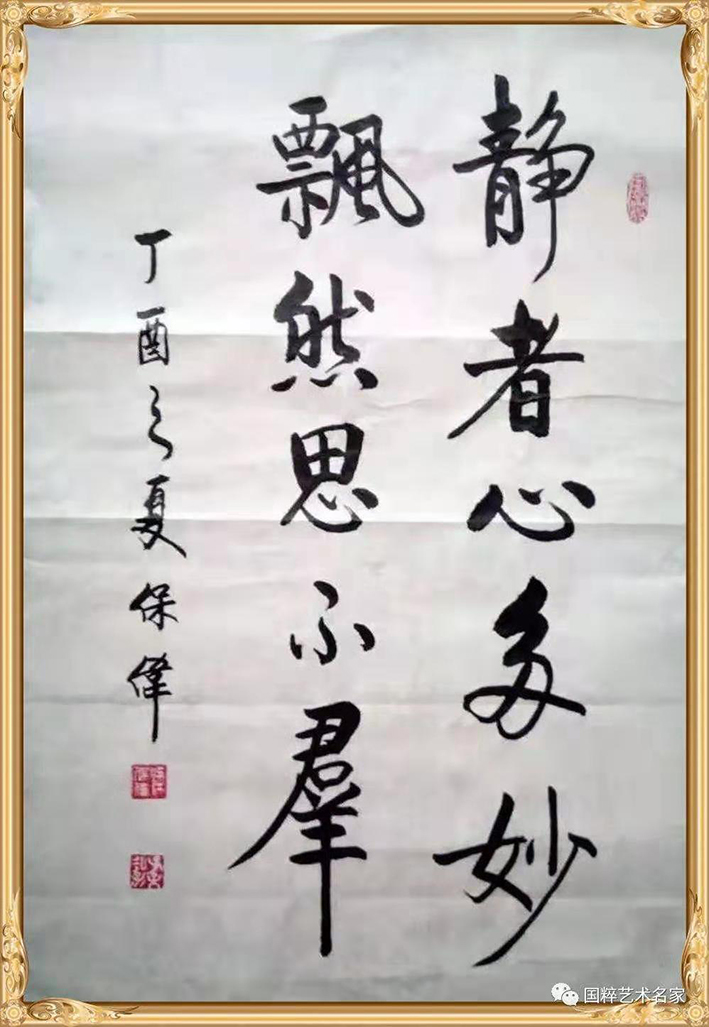 静者心多妙
飄然思不羣
丁酉之夏保偉
国粹艺术名家